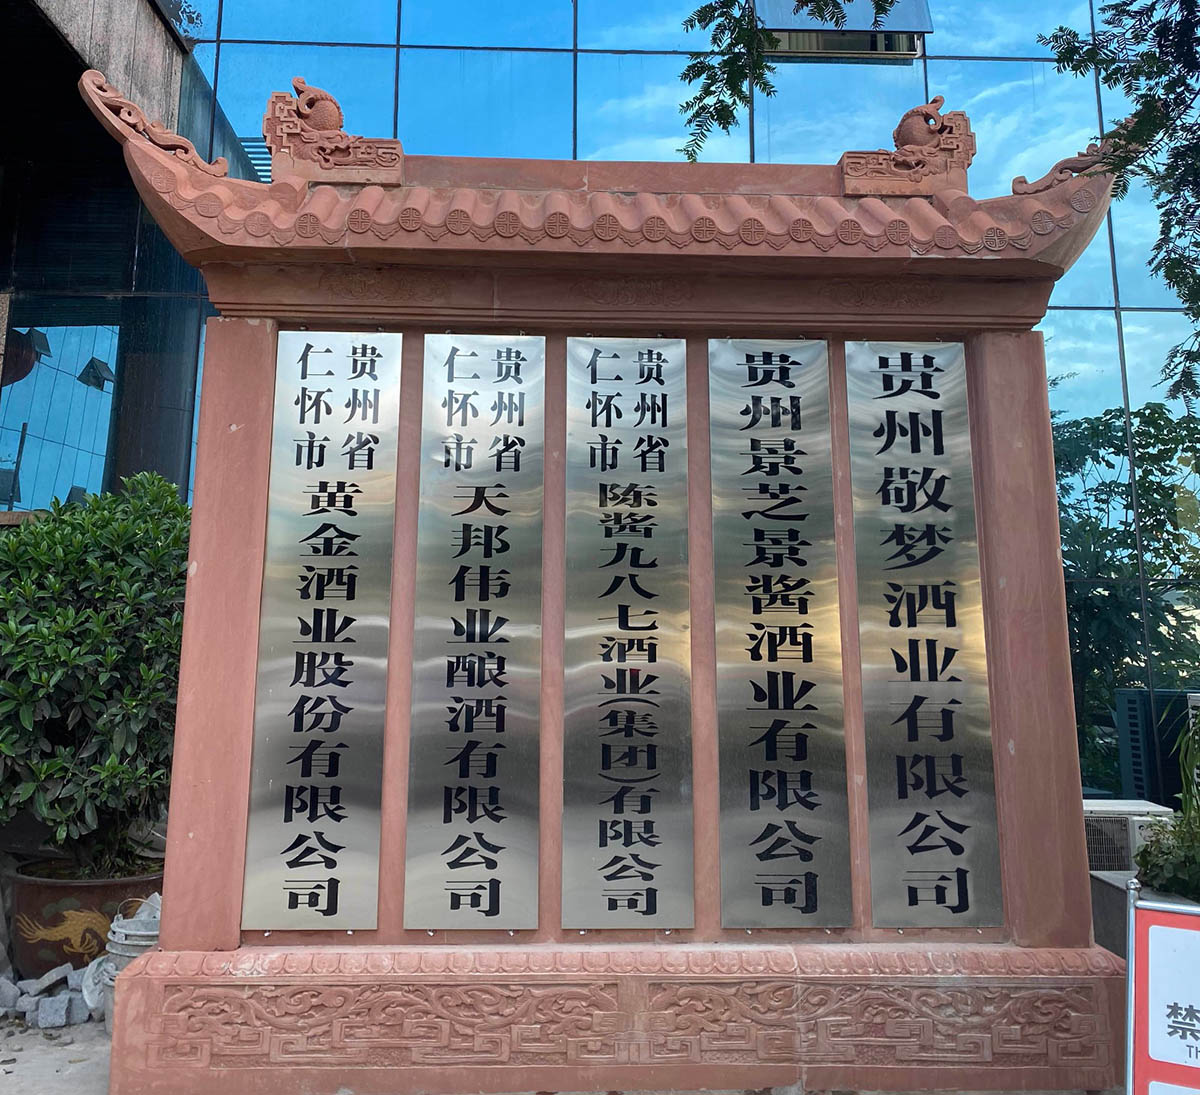 贵州省
仁怀市
黄金酒业股份有限公司
贵州省
仁怀市
天邦伟业酿酒有限公司
贵州省
仁怀市
陈酱九八七酒业(集团)有限公司
贵州景芝景酱酒业有限公司
贵州敬梦酒业有限公司
禁
TH